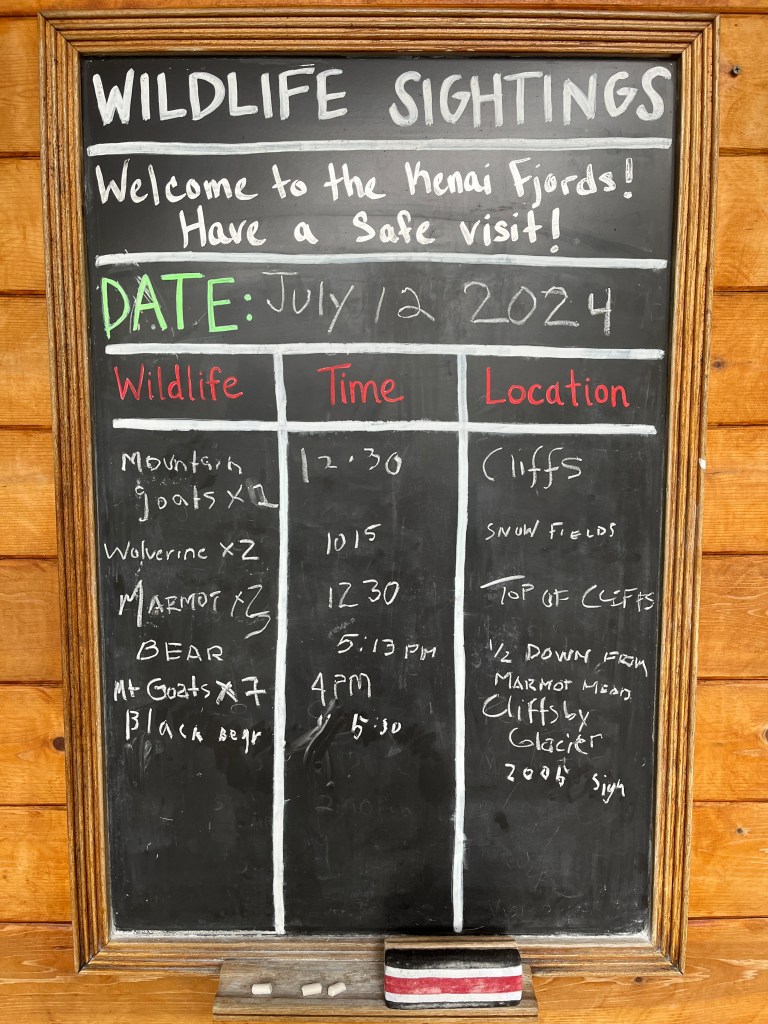 WILDLIFE SIGHTINGS
Welcome to the Kenai Fjords!
Have a Safe visit!
DATE: July 12 2024
Wildlife Time Location
Mountain 12:30 Cliffs
goats x2
Wolverine x2 1015 SNOW FIELDS
MARMOT x3 1230 TOP OF CLIFFS
BEAR 5:13 PM 1/2 DOWN FROM
MARMOT MEAD
Mt Goats x 7 4PM Cliffs by
Glacier
Black bear 5:30 2005 sign